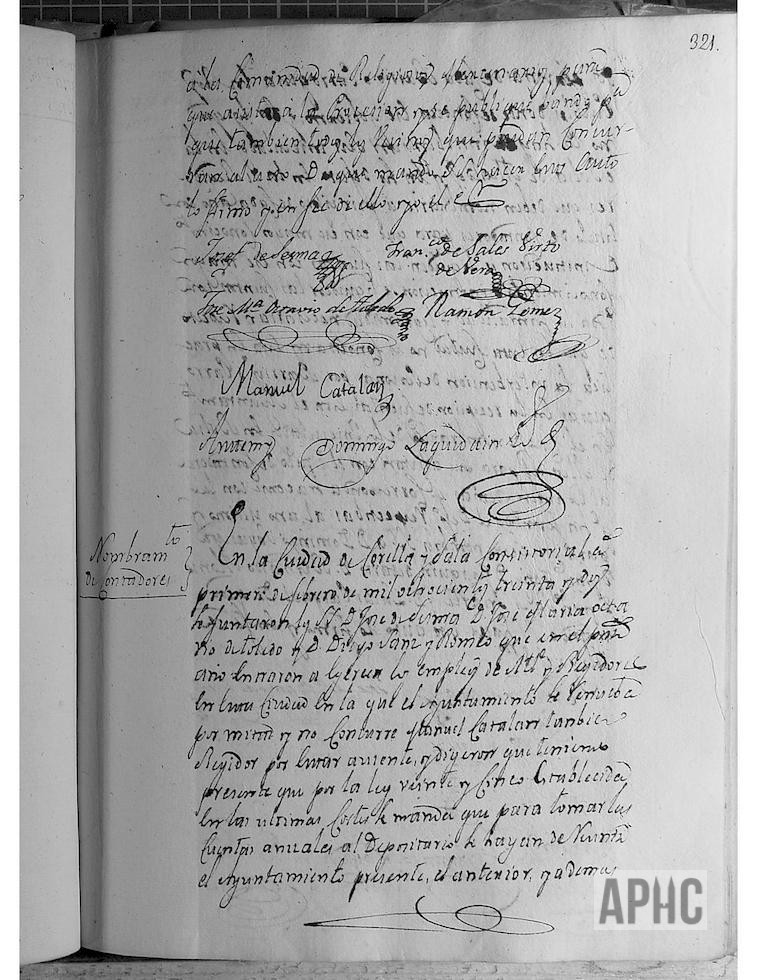 321.
à la Comunidad de Religiosos Mercenarios, para
que asista à la Procesion
que tambien los que puedan Concur-
rir al acto. De que mandaron hacer este Auto
lo firmo y en fee de ello yo el
José de Sesma
Fran.co de Sales Virto
de Vera
José M.a Octavio de Toledo
Ramon Gomez
Manuel Catalan
Antemi
Domingo Laquidain
Nombram.to
de Contadores
En la Ciudad de Corella y Sala Consistorial à
primero de febrero de mil ochocientos treinta y
se juntaron los SS. D. José de Sesma D. José Maria Octa
vio de Toledo y D. Diego Sanz y Romeo que en el pnte
año entraron a egercer los empleos de Alc.e y Regidores
en esta Ciudad en la que el Ayuntamiento se Renueba
por mitad y no Concurre Manuel Catalan tambien
Regidor por estar ausente, y digeron que teniendo
presente que por la ley veinte y Cinco Establecida
en las ultimas Cortes se manda que para tomar las
Cuentas anuales al Depositario se hayan de Reunir
el Ayuntamiento presente, el anterior, y ademas
APHC